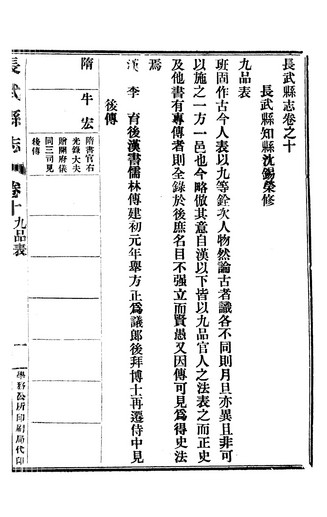 長武縣志卷之十
長武縣知縣沈錫榮修
九品表
班固作古今人表以九等銓次人物然論古者識各不同則月旦亦異且非可
以施之一方一邑也今略倣其意自漢以下皆以九品官人之法表之而正史
及他書有專傳者則全錄於後庶名目不强立而賢愚又因傳可見爲得史法
焉
漢 李 育後漢書儒林傳建初元年舉方正爲議郎後拜博士再遷侍中見
後傳
隋 牛宏
隋書官右
光錄大夫
贈開府儀
同三司見
後傳
長武縣志 卷十 九品表 一 學務公所印刷局代印